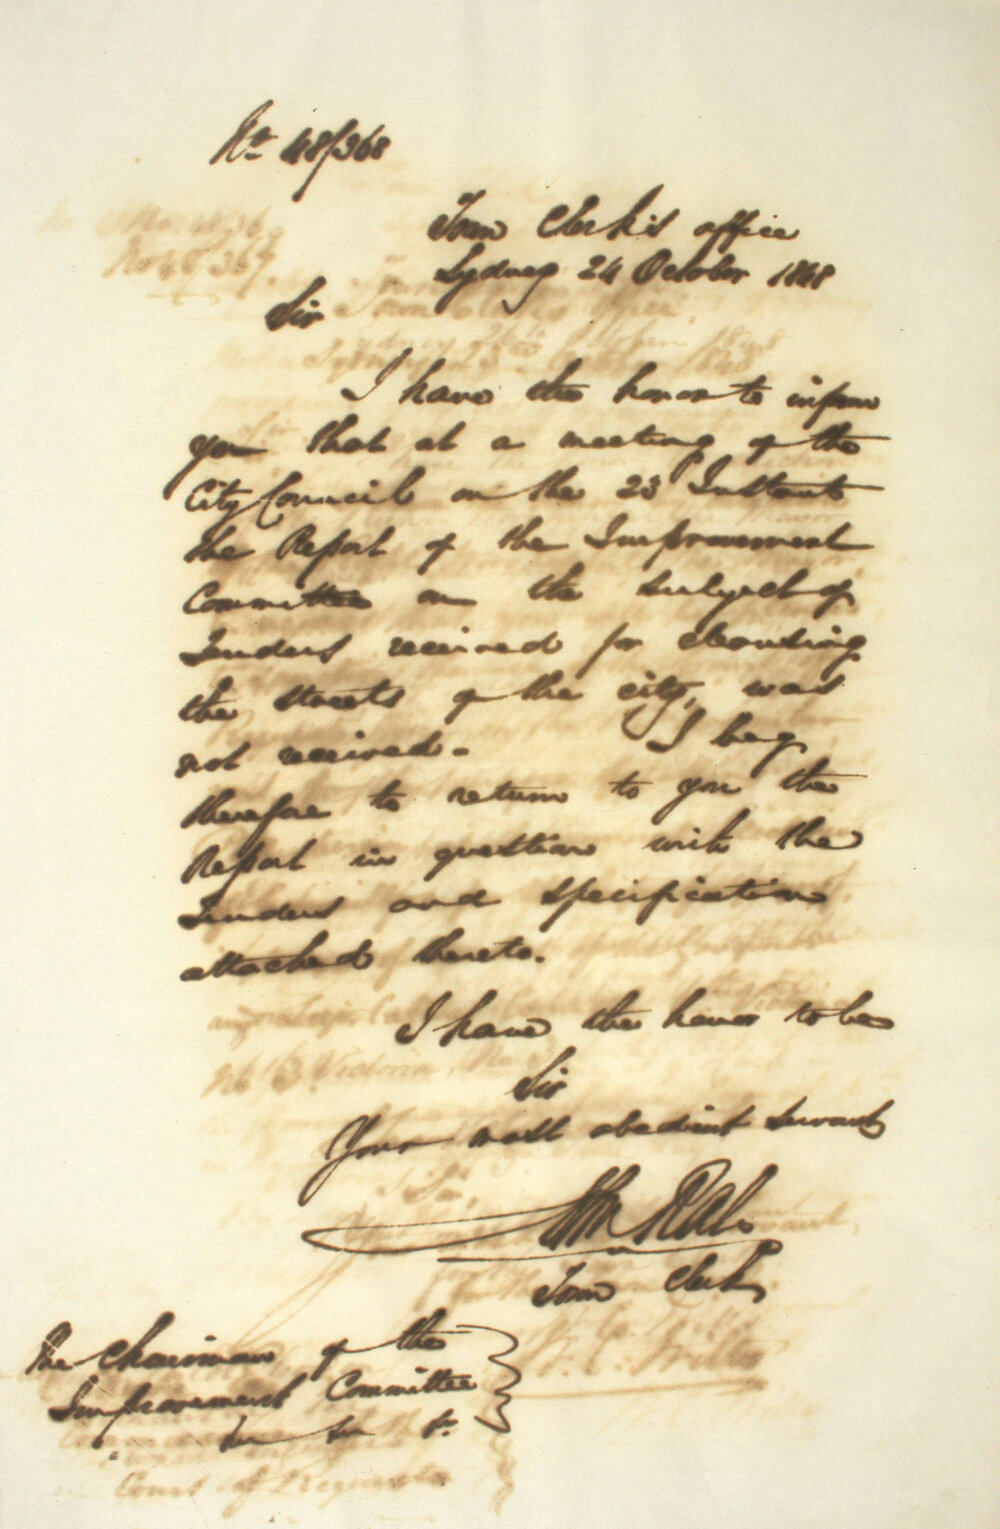 No 48/368
Town Clerk's office
Sydney 24 October 1848
Sir
I have the honor to inform
you that at a meeting of the
City Council on the 23 Instant
the Report of the Improvement
Committee on the subject of
Tenders received for cleansing
the streets of the city, was
not received. I beg
therefore to return to you the
Report in question with the
Tenders and specification
attached thereto.
I have the honor to be
Sir
Your most obedient servant
Town Clerk
The Chairman of the
Improvement Committee